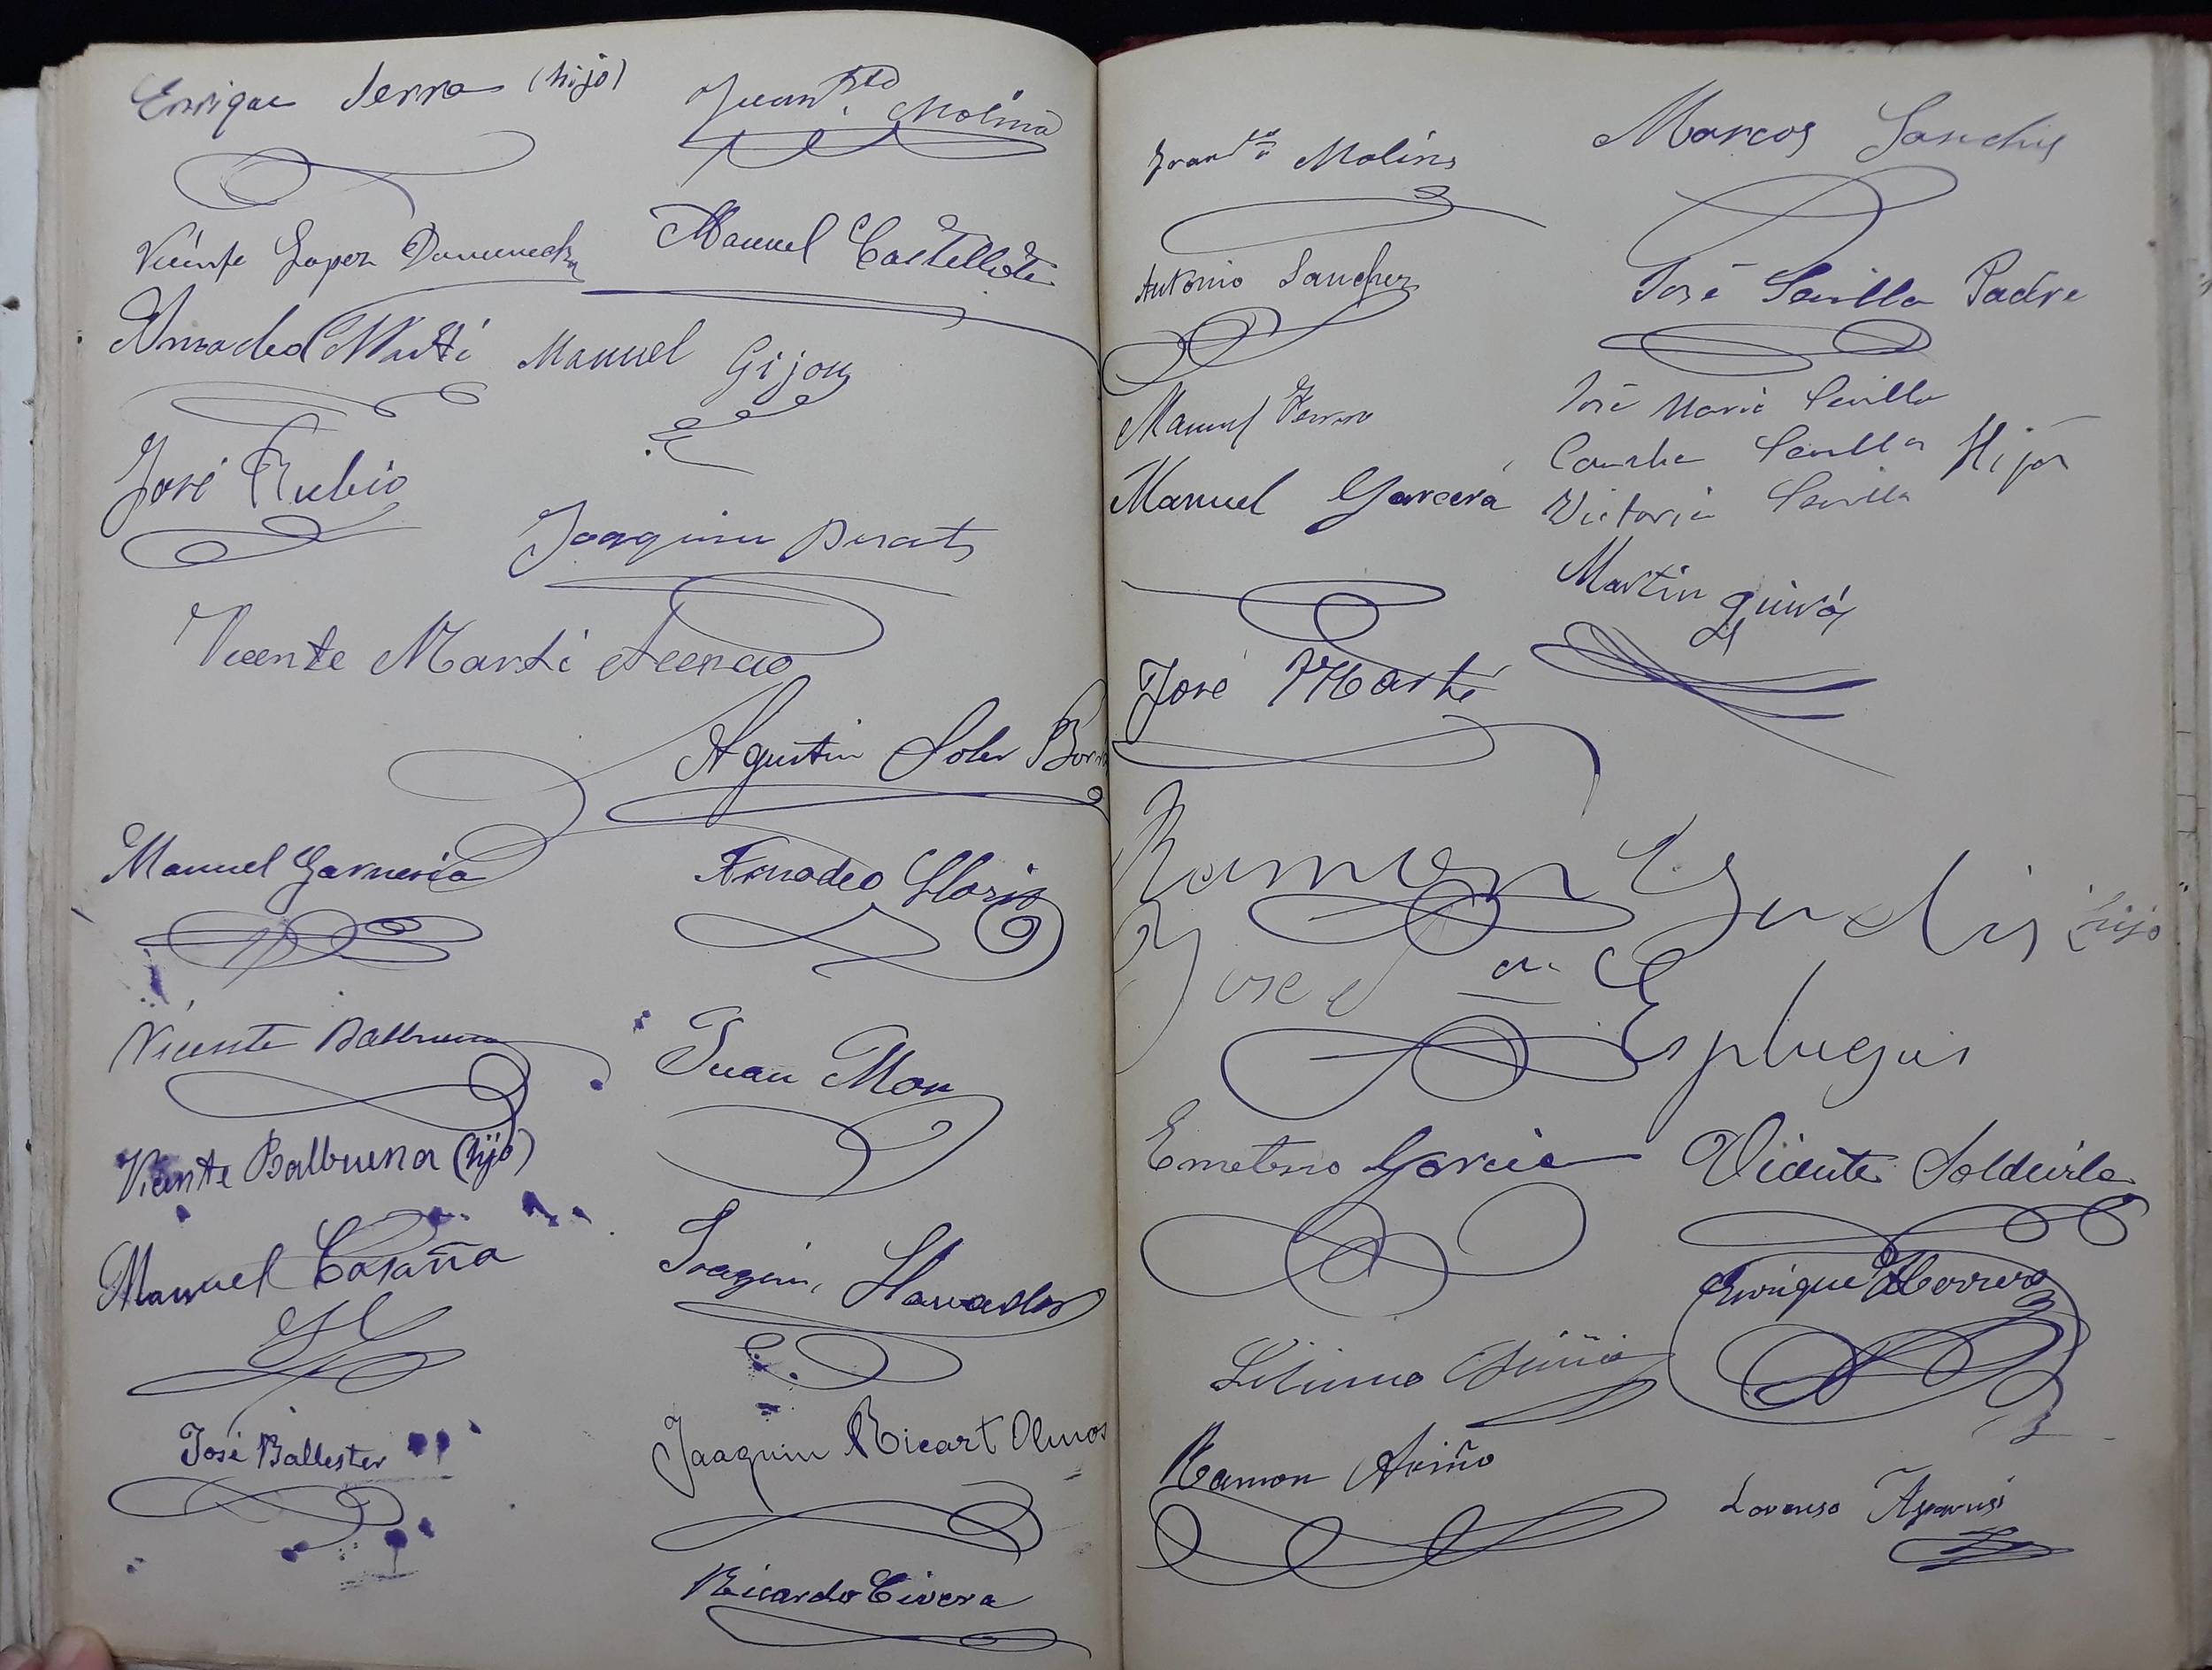 Enrique Serra (hijo)
Juan Bta Molina
Vicente Lopez Domenech
Manuel Castellote
Amadeo Martí
Manuel Gijon
José Rubio
Joaquin
Vicente Marti Asencio
Agustin Soler
Manuel Garneria
Amadeo Lloris
Vicente Balbuena
Juan Mor
Vicente Balbuena (hijo)
Manuel Casaña
Joaquin
José Ballester
Joaquin Ricart Olmos
Ricardo Civera
Franco Molins
Marcos Sanchis
Antonio Sanchez
José Sevilla Padre
Manuel Ferrer
José Maria Sevilla
Concha Sevilla Hijos
Manuel Garcerá
Victoria Sevilla
Martin
José Marti
Ramon Gudis hijo
Jose Ma
Esplugis
Emeterio Garcia
Vicente Soldevila
Enrique Herrero
Ramon Ariño
Lorenso Aparisi